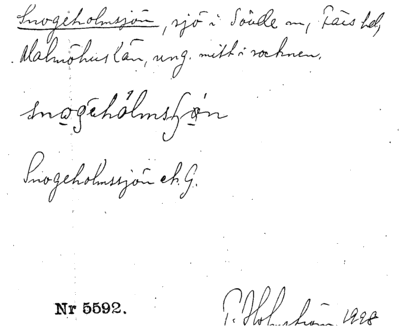 Snogeholmssjön, sjö i Sövde sn, Färs hd,
Malmöhus län, ung. mitt i socknen.
Snogeholmssjön ek. G.
Nr 5592.
1928